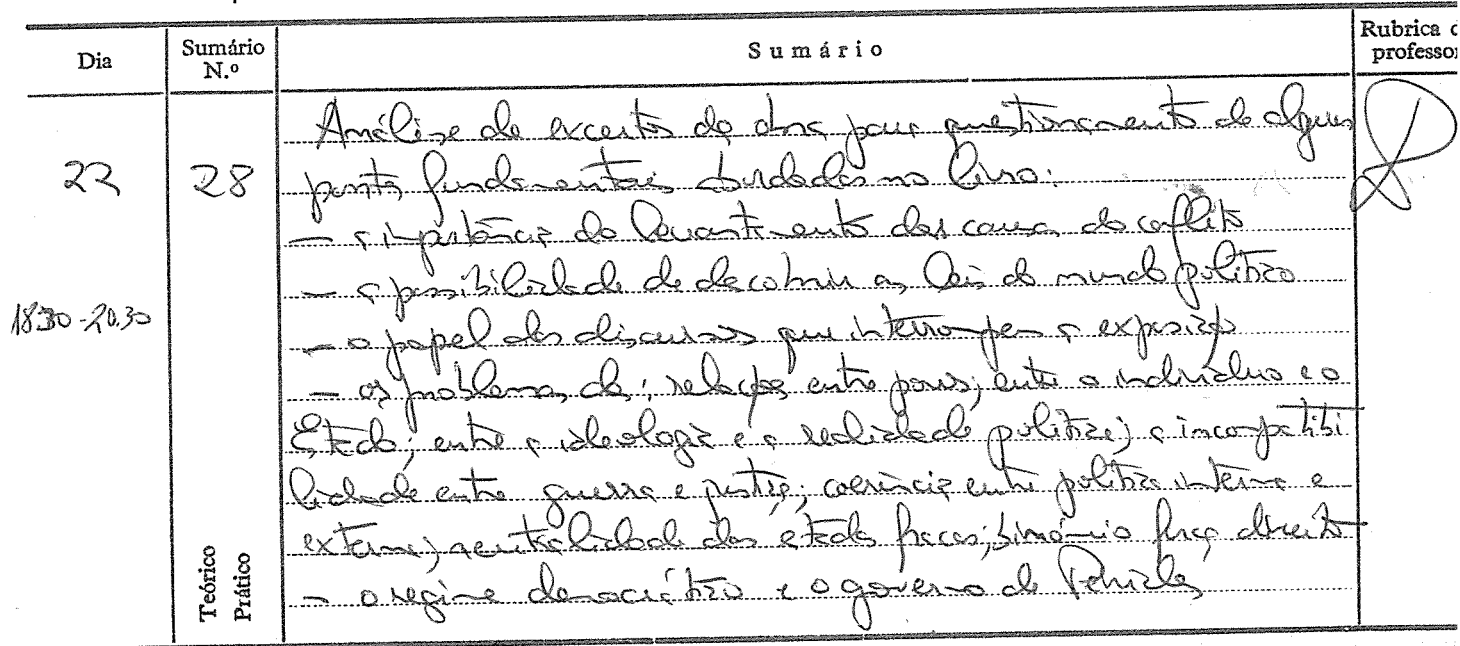 Dia
Sumário N.º
Sumário
Rubrica d
professor
22
28
18.30-20.30
Análise de excertos da obra para questionamento de alguns
pontos fundamentais abordados no livro:
– a importância do levantamento das causas do conflito
– a possibilidade de descobrir as leis do mundo político
– o papel dos discursos que interrompem a exposição
– os problemas da: relações entre povos; entre o indivíduo e o
Estado; entre a ideologia e a realidade política; a incompatibi
lidade entre guerra e justiça; coerência entre política interna e
externa; neutralidade dos estados fracos; binómio força direito
– o regime democrático e o governo de Péricles
Teórico
Prático